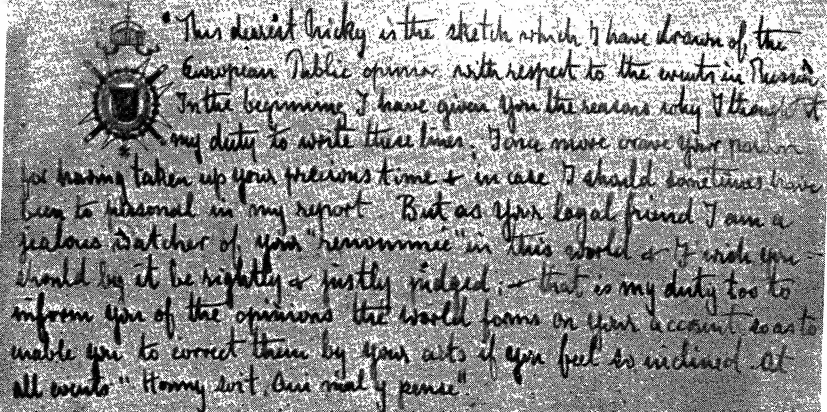 "This dearest Nicky is the sketch which I have drawn of the
European Public opinion with respect to the events in Russia.
In the beginning I have given you the reasons why I thought it
my duty to write these lines. I once more crave your pardon
for having taken up your precious time & in case I should sometimes have
been to personal in my report. But as your loyal friend I am a
jealous Watcher of your "renommée" in this world & I wish you
should by it be rightly & justly judged; & that is my duty too to
inform you of the opinions the world forms on your account so as to
enable you to correct them by your acts if you feel so inclined. At
all events "Honny soit. Qui mal y pense".